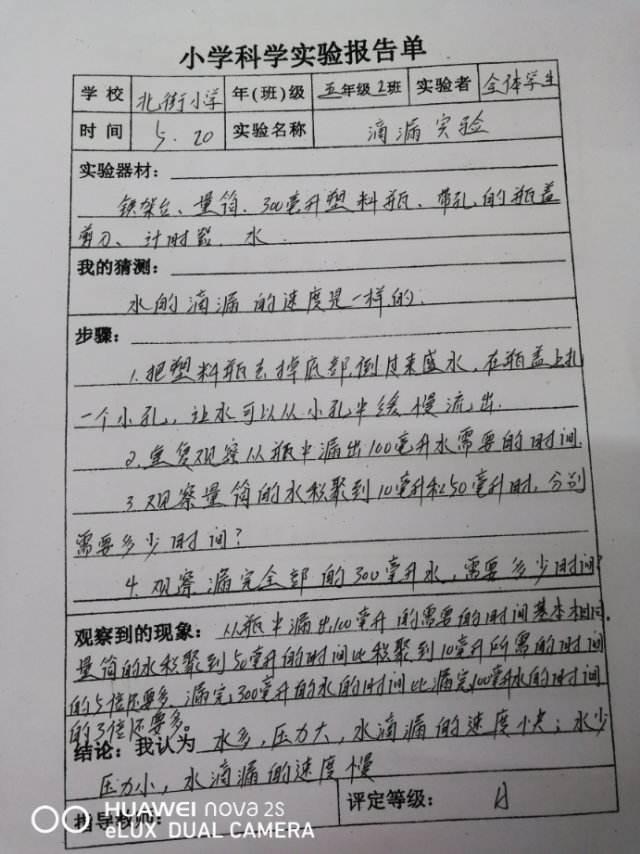 小学科学实验报告单
学校 北街小学 年(班)级 五年级2班 实验者 全体学生
时间 5.20 实验名称 滴漏实验
实验器材:
铁架台、量筒、300毫升塑料瓶、带孔的瓶盖
剪刀、计时器、水.
我的猜测:
水的滴漏的速度是一样的.
步骤:
1.把塑料瓶去掉底部,倒过来盛水,在瓶盖上扎
一个小孔,让水可以从小孔中缓慢流出.
2.重复观察从瓶中漏出100毫升水需要的时间.
3.观察量筒的水积聚到10毫升和50毫升时,分别
需要多少时间?
4.观察漏完全部的300毫升水,需要多少时间?
观察到的现象:从瓶中漏出100毫升的需要的时间基本相同.
量筒的水积聚到50毫升的时间比积聚到10毫升所需的时间
的5倍还要多.漏完300毫升的水的时间比漏完100毫升水的时间
的3倍还要多。
结论:我认为 水多,压力大,水滴漏的速度快;水少
压力小,水滴漏的速度慢
指导教师: 评定等级: A
HUAWEI nova 2S
eLUX DUAL CAMERA